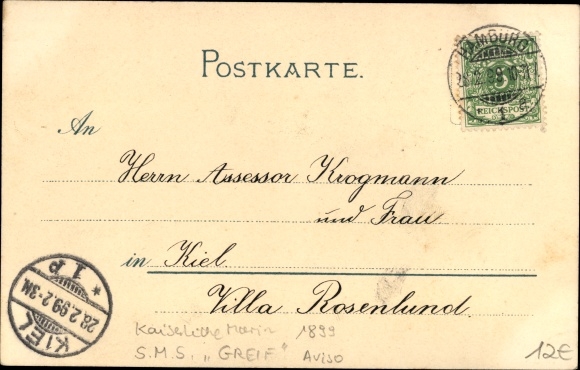 POSTKARTE.
HAMBURG
5
REICHSPOST
1
An
Herrn Assessor Krogmann
und Frau
in Kiel.
Villa Rosenlund.
KIEL
28.2.99.2-3N.
* 1 p
Kaiserliche Marine 1899
S.M.S. „GREIF" Aviso
12€